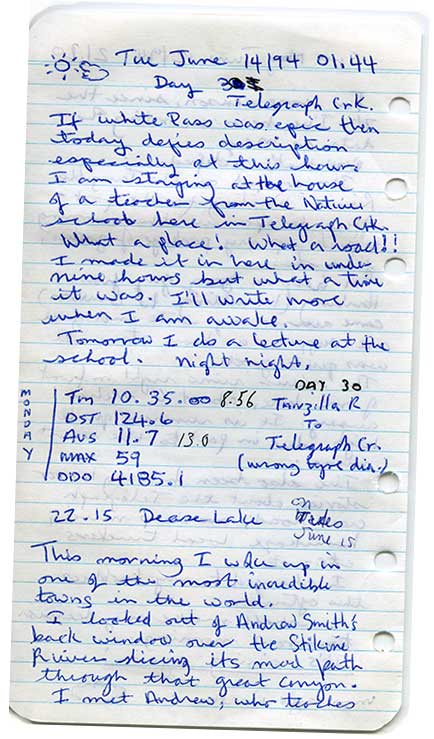 Tue June 14/94 01.44
Day
Telegraph Crk.
If white Pass was epic then
today defies description
especially at this hour.
I am staying at the house
of a teacher from the Natives
school here in Telegraph Crk.
What a place! What a road!!
I made it in here in under
nine hours but what a time
it was. I'll write more
when I am awake.
Tomorrow I do a lecture at the
school. Night night.
DAY 30
MONDAY
Tm 10.35.00 8.56 Tanzilla R
DST 124.6 To
AVS 11.7 13.0 Telegraph Cr.
MAX 59 (wrong tyre dia.)
ODO 4185.1
22.15 Dease Lake on Wedes
June 15
This morning I woke up in
one of the most incredible
towns in the world.
I looked out of Andrew Smith's
back window over the Stikine
River slicing its mad path
through that great canyon.
I met Andrew, who teaches